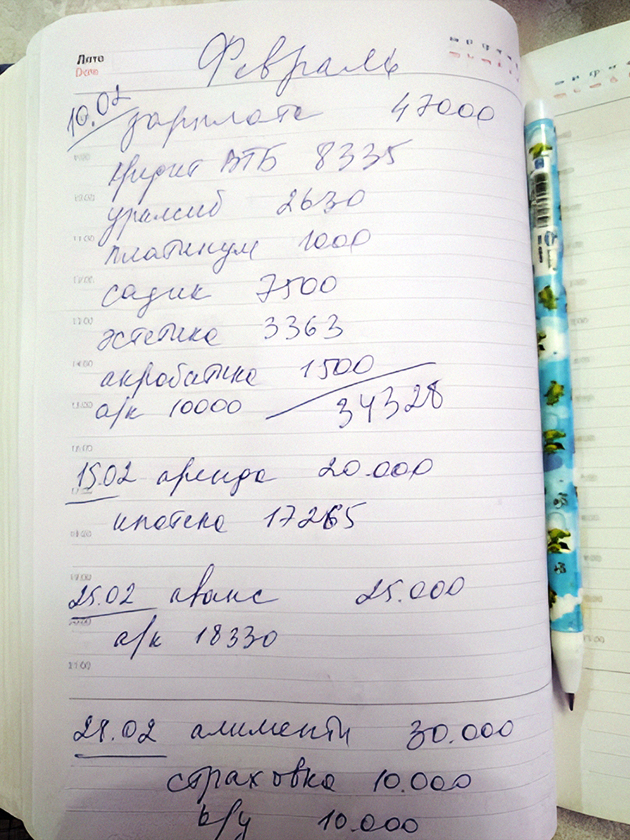 Дата
Date
Февраль
10.02 зарплата 47000
Кредит ВТБ 8335
уралсиб 2630
платинум 1000
садик 7500
эстетика 3363
акробатика 1500
а/к 10000 34328
15.02 аренда 20.000
ипотека 17265
25.02 аванс 25.000
а/к 18330
28.02 алименты 30.000
страховка 10.000
к/у 10.000